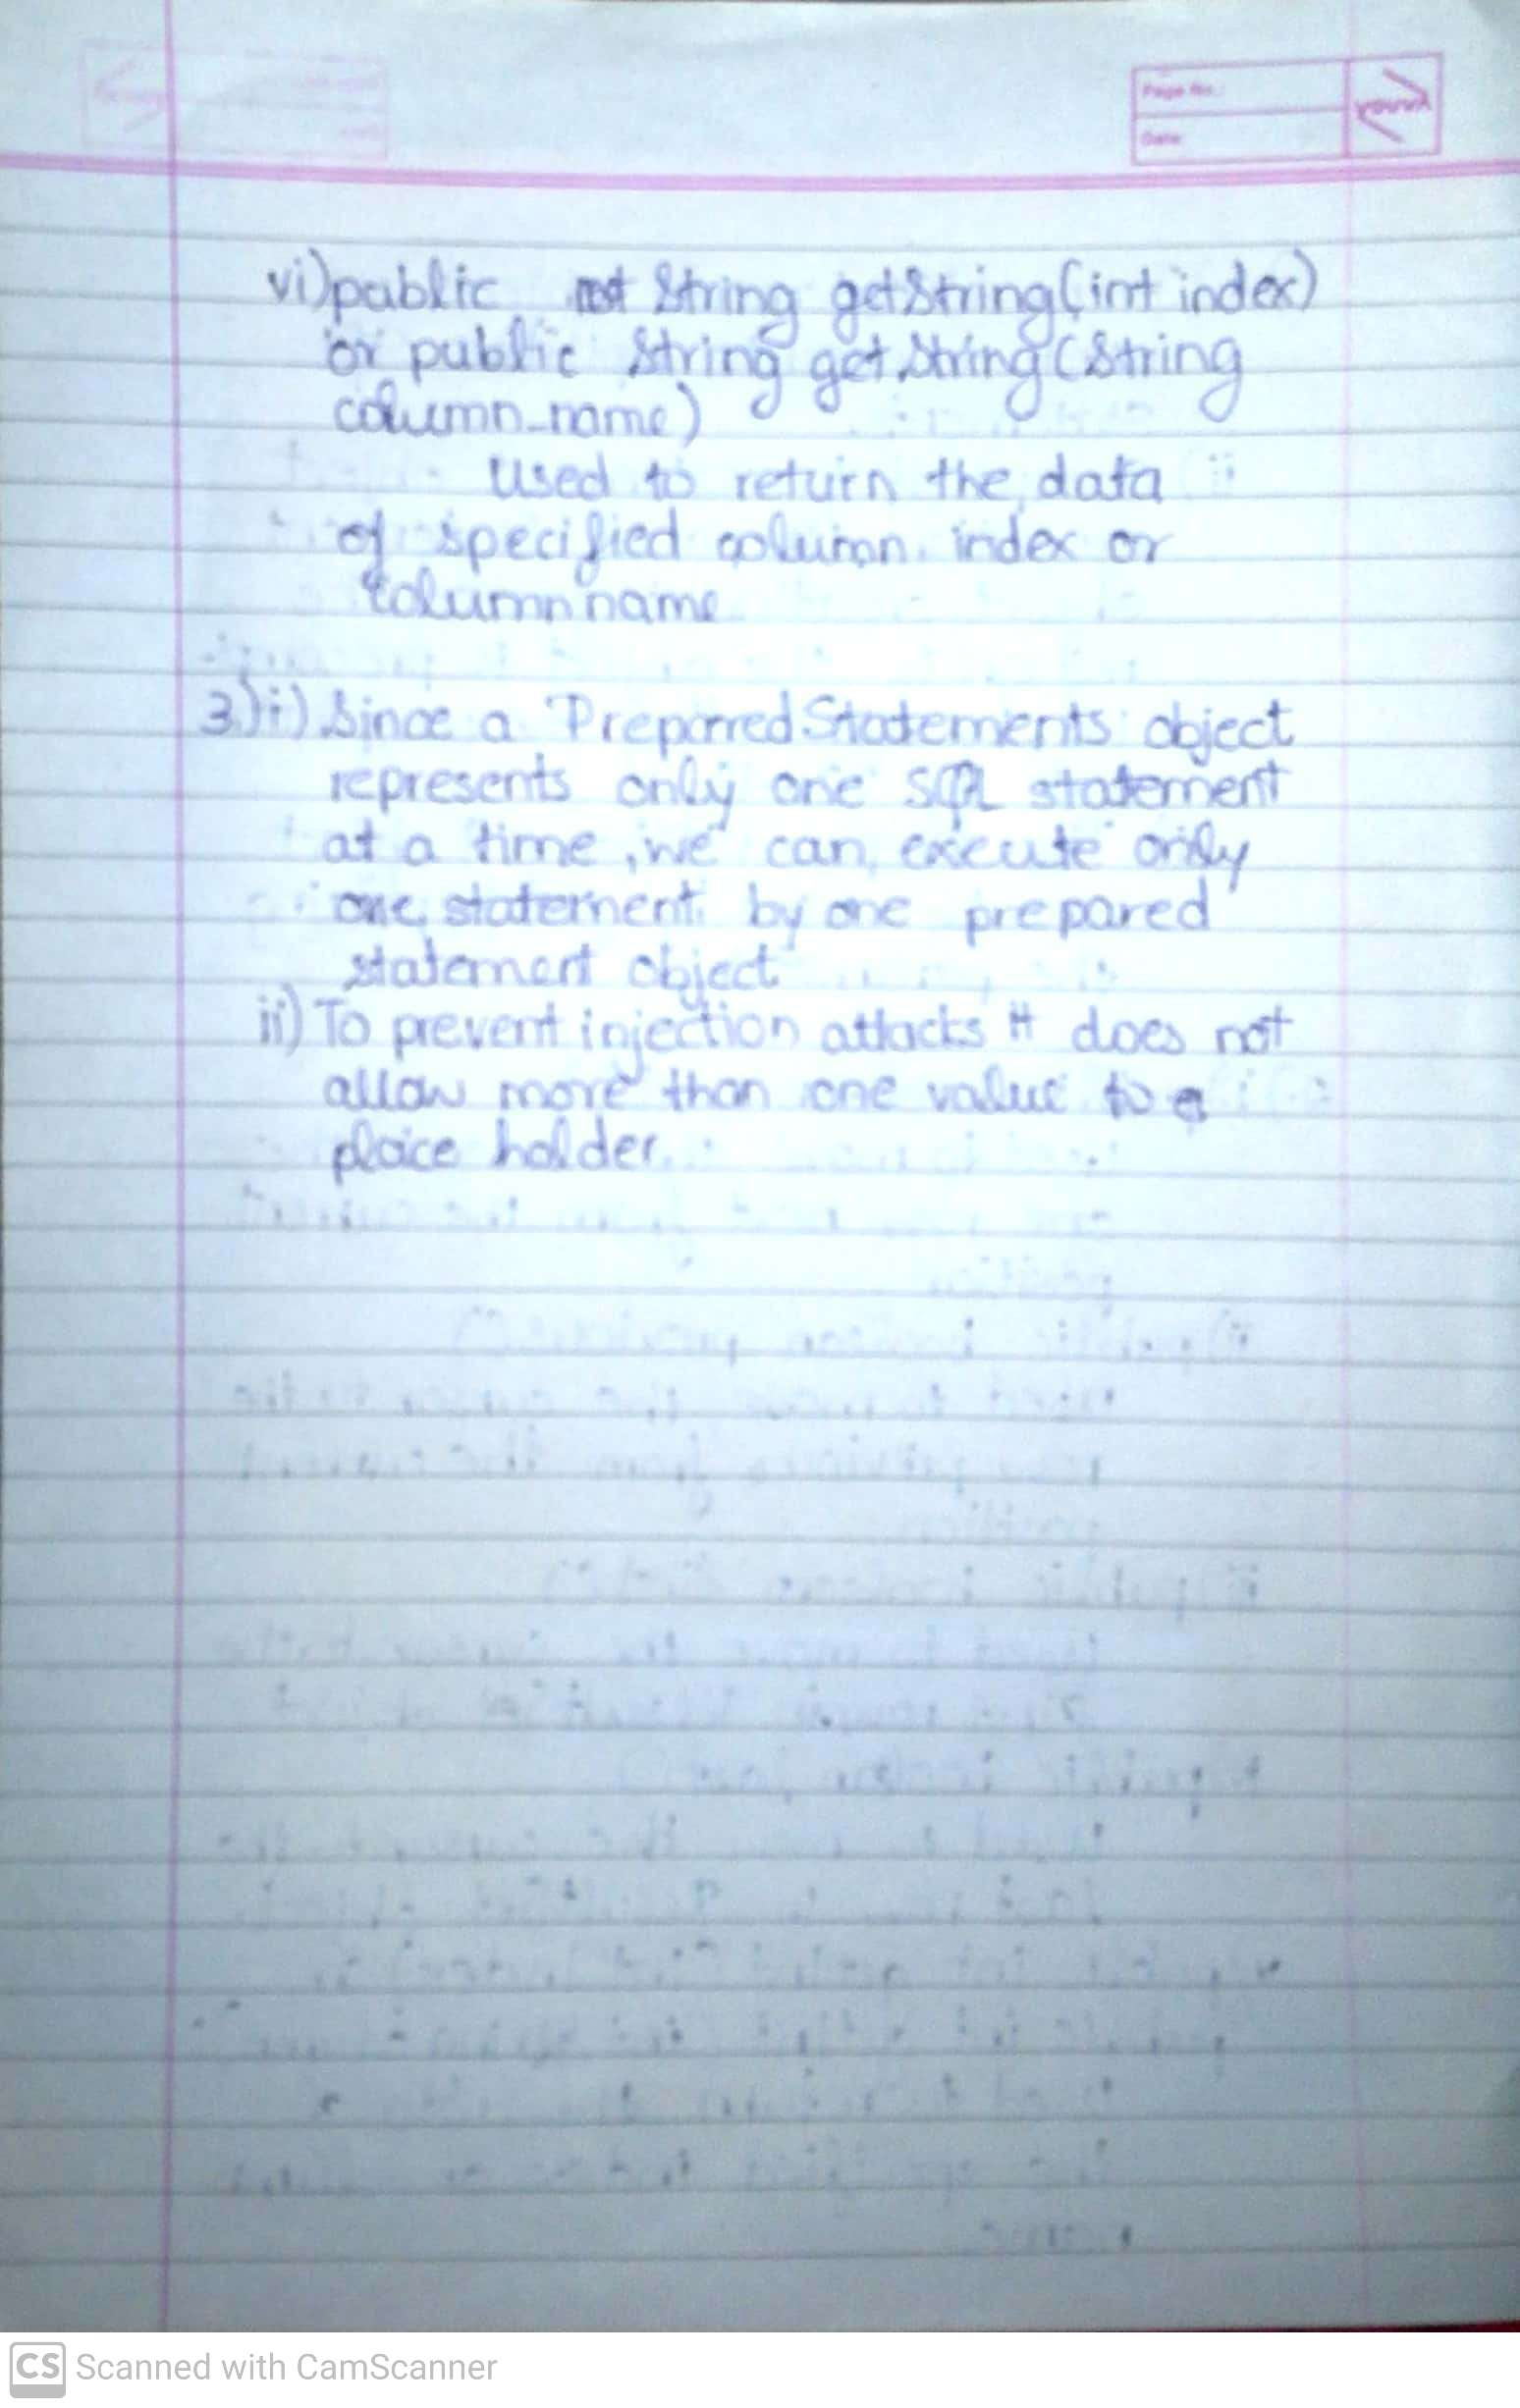 Page No.:
Date:
YOUVA
vi) public String getString(int index)
or public String getString(String
column_name)
Used to return the data
of specified column index or
column name
3.) i) Since a PreparredStatements object
represents only one SQL statement
at a time, we can execute only
one statement by one prepared
statement object
ii) To prevent injection attacks it does not
allow more than one value to a
place holder.
CS Scanned with CamScanner